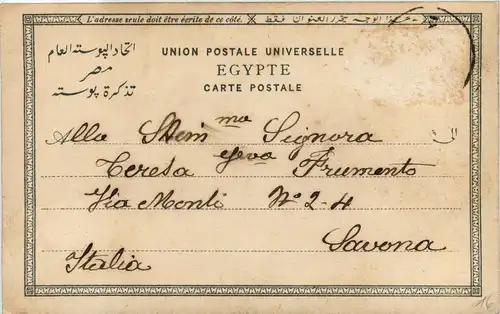 L'adresse seule doit être écrite de ce côté. هذا الوجه يحرر العنوان فقط
اتحاد البوسته العام
مصر
تذكرة بوسته
UNION POSTALE UNIVERSELLE
EGYPTE
CARTE POSTALE
Alla Stim ma Signora
Teresa Frumento
Via Monti No 2-4
Savona
Italia
16